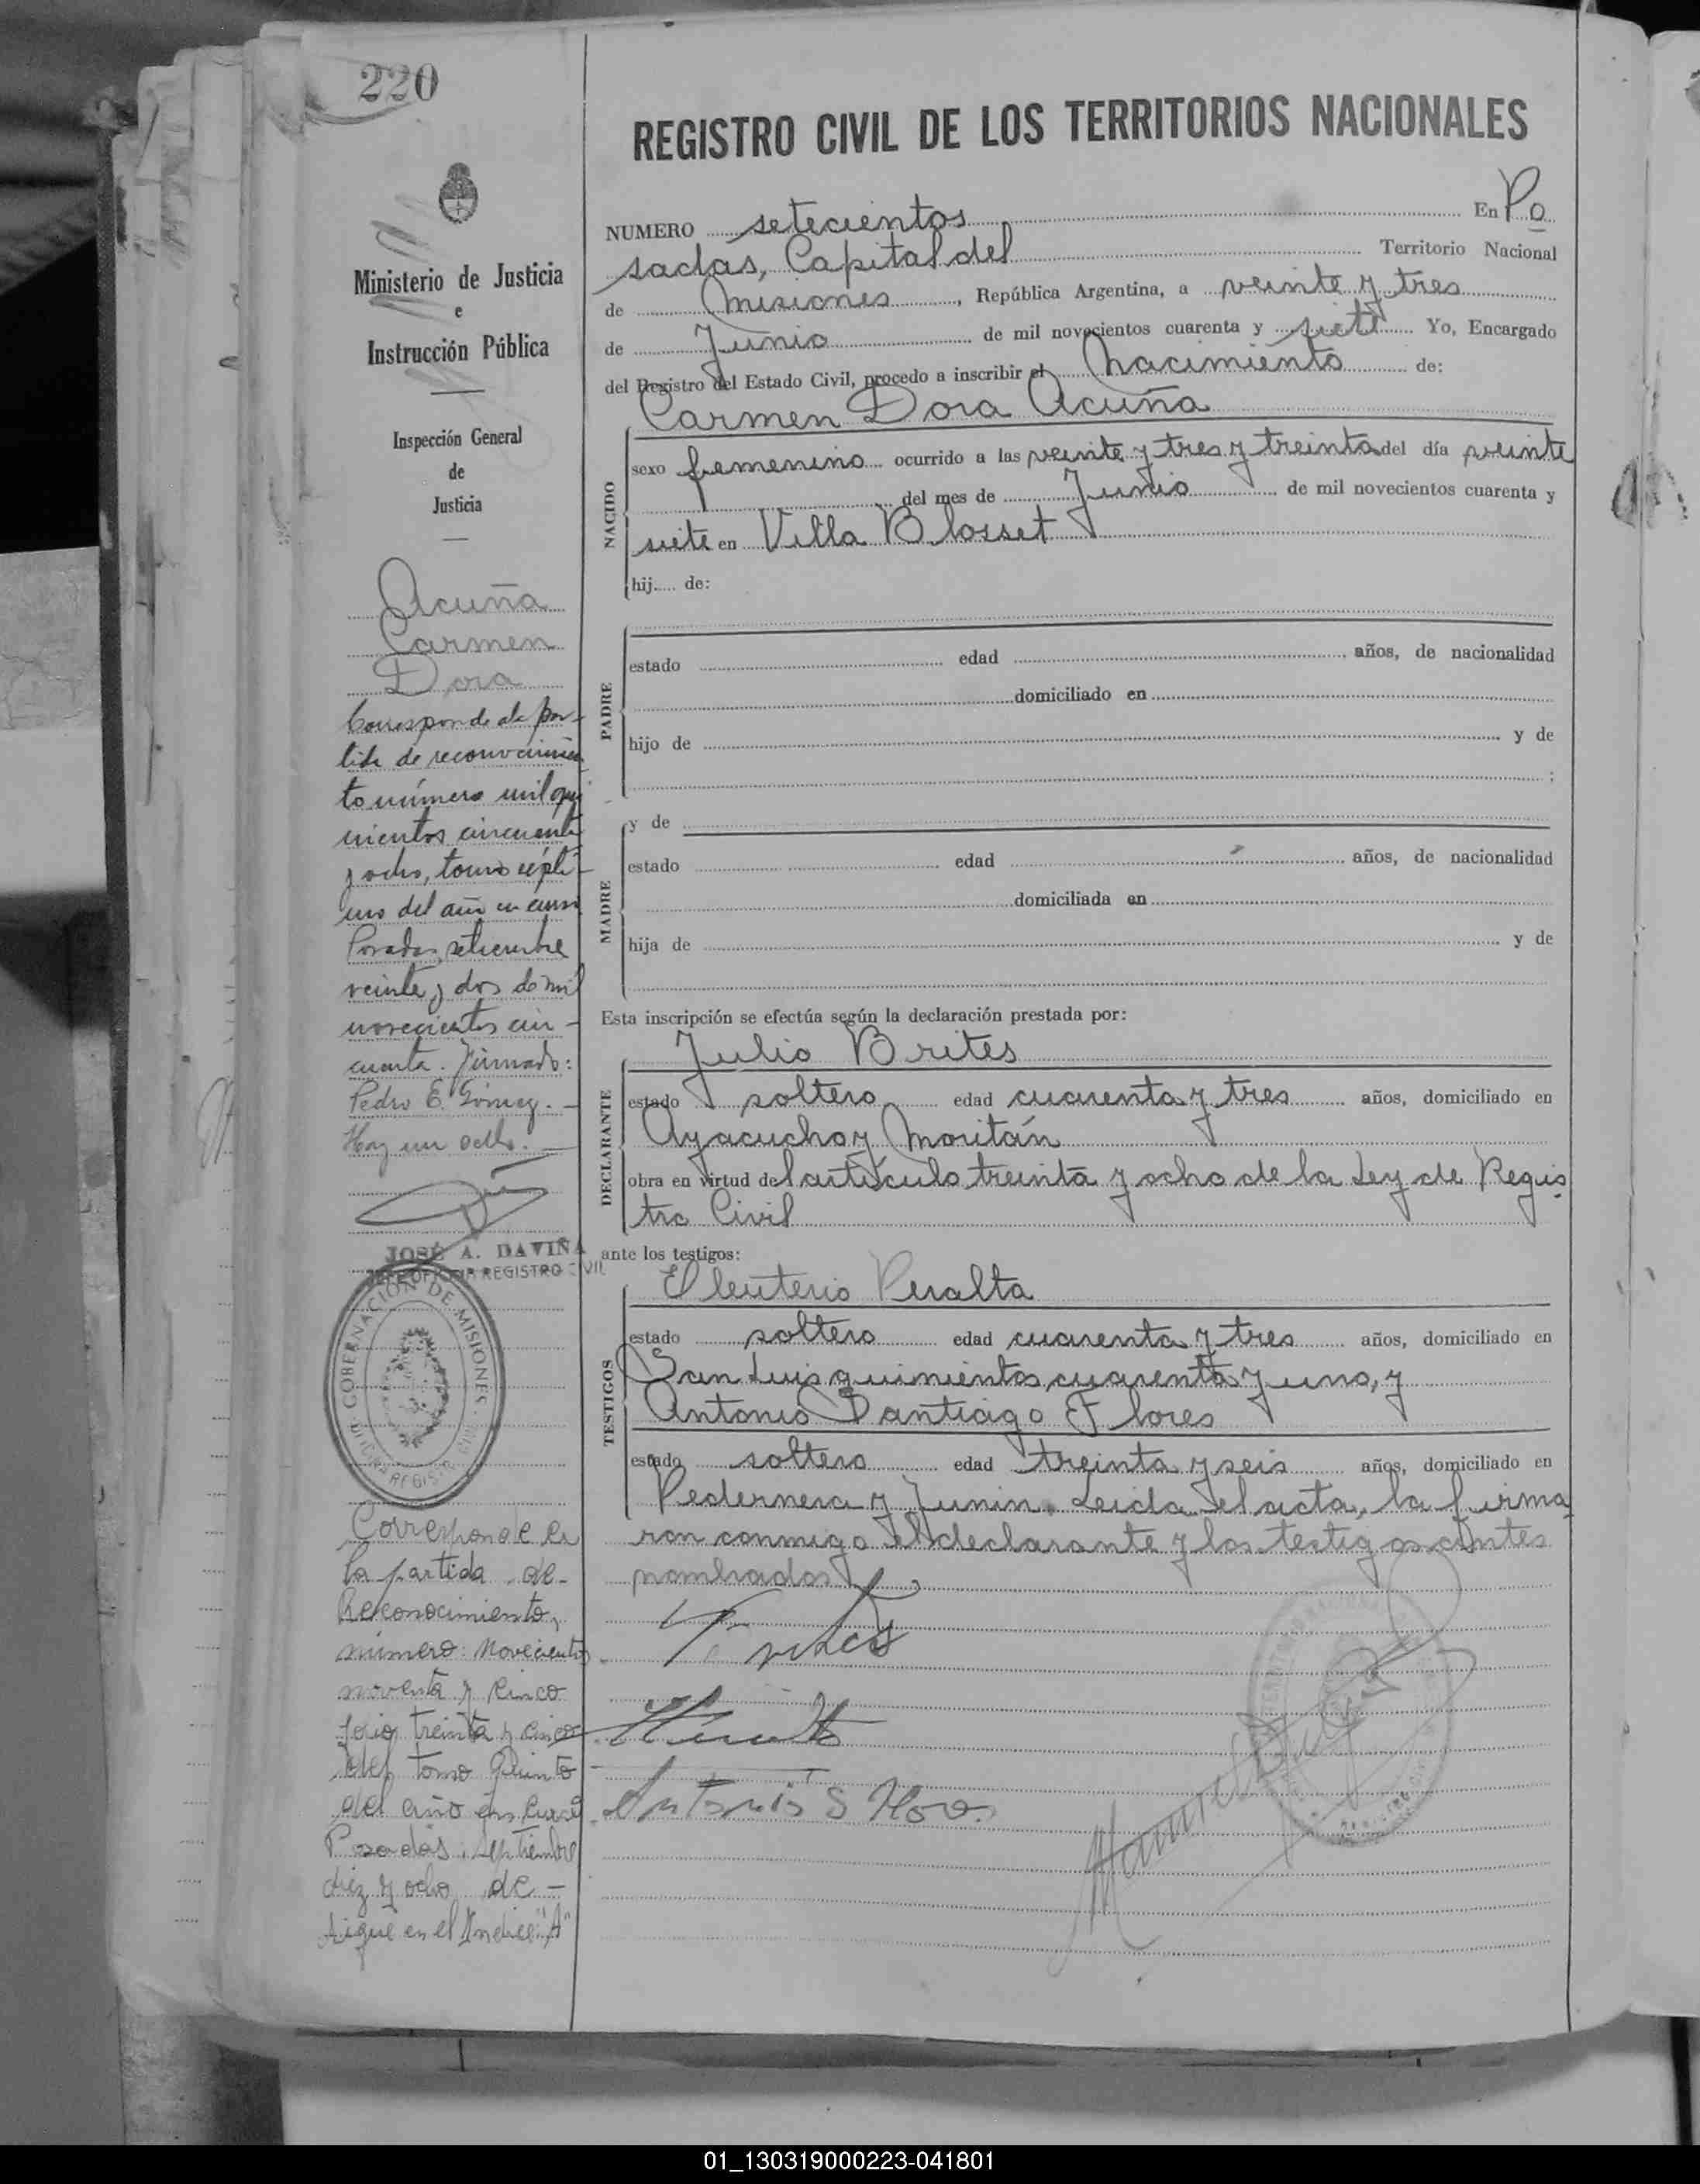 220
REGISTRO CIVIL DE LOS TERRITORIOS NACIONALES
Ministerio de Justicia
e
Instrucción Pública
Inspección General
de
Justicia
Acuña
Carmen
Dora
Corresponde a la par-
tida de reconocimien
to número mil qui
nientos cincuenta
y ocho, tomo sépti-
mo del año en curso
Posadas, setiembre
veinte y dos de mil
novecientos cin-
cuenta. Firmado:
Pedro E. Gómez. -
Hay un sello. -
JOSÉ A. DAVIÑA
JEFE OFICINA REGISTRO CIVIL
GOBERNACION DE MISIONES
Corresponde a
la partida de-
Reconocimiento,
número: Novecientos
noventa y cinco
folio treinta y cinco
del tomo Quinto
del año en curso
Posadas, Septiembre
diez y ocho de -
sigue en el Indice "A"
NUMERO setecientos En Po
sadas, Capital del Territorio Nacional
de Misiones, República Argentina, a veinte y tres
de Junio de mil novecientos cuarenta y siete Yo, Encargado
del Registro del Estado Civil, procedo a inscribir el Nacimiento de:
Carmen Dora Acuña
NACIDO
sexo femenino ocurrido a las veinte y tres y treinta del día veinte
del mes de Junio de mil novecientos cuarenta y
siete en Villa Blosset
hij de:
PADRE
estado edad años, de nacionalidad
domiciliado en
hijo de y de
;
MADRE
y de
estado edad años, de nacionalidad
domiciliada en
hija de y de
Esta inscripción se efectúa según la declaración prestada por:
DECLARANTE
Julio Brites
estado soltero edad cuarenta y tres años, domiciliado en
Ayacucho y Moritán
obra en virtud del artículo treinta y ocho de la Ley de Regis
tro Civil
ante los testigos:
TESTIGOS
Eleuterio Peralta
estado soltero edad cuarenta y tres años, domiciliado en
San Luis quinientos cuarenta y uno, y
Antonio Santiago Flores
estado soltero edad treinta y seis años, domiciliado en
Pedernera y Junin. Leida el acta, la firma
ron conmigo el declarante y los testigos antes
nombrados
Antonio S Flores
01_130319000223-041801